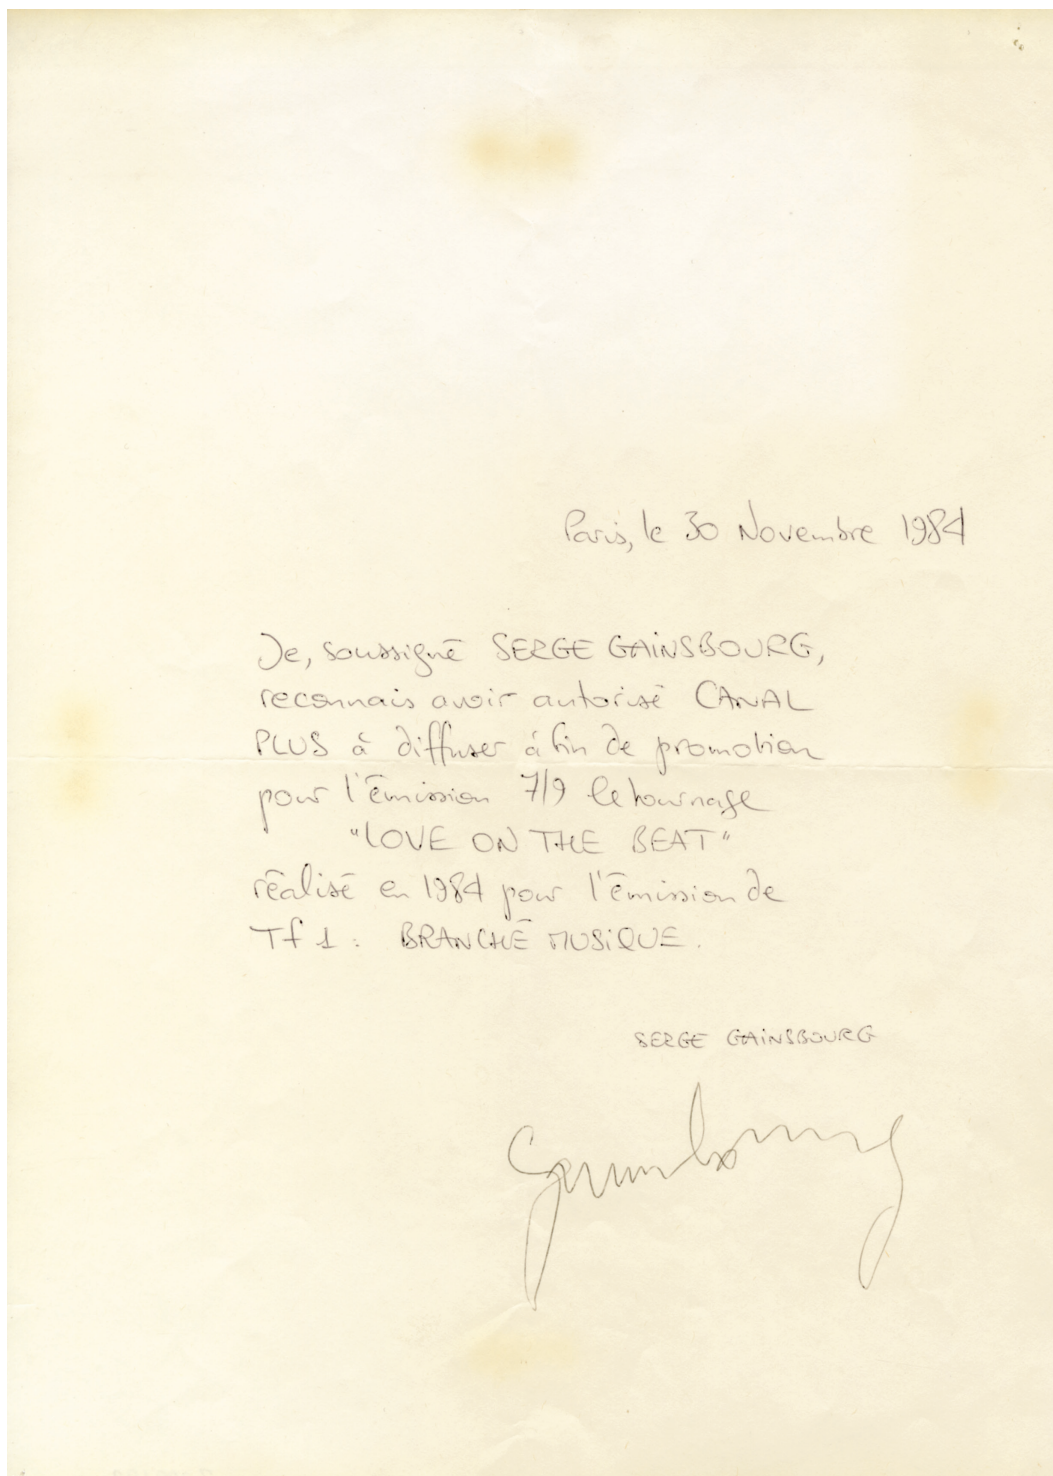 Paris, le 30 Novembre 1984
Je, soussigné SERGE GAiNSBOURG,
reconnais avoir autorisé CANAL
PLUS à diffuser á fin de promotion
pour l'émission 7/9 le tournage
"LOVE ON THE BEAT"
réalisé en 1984 pour l'émission de
Tf 1 : BRANCHÉ MUSiQUE.
SERGE GAiNSBOURG
Gainsbourg